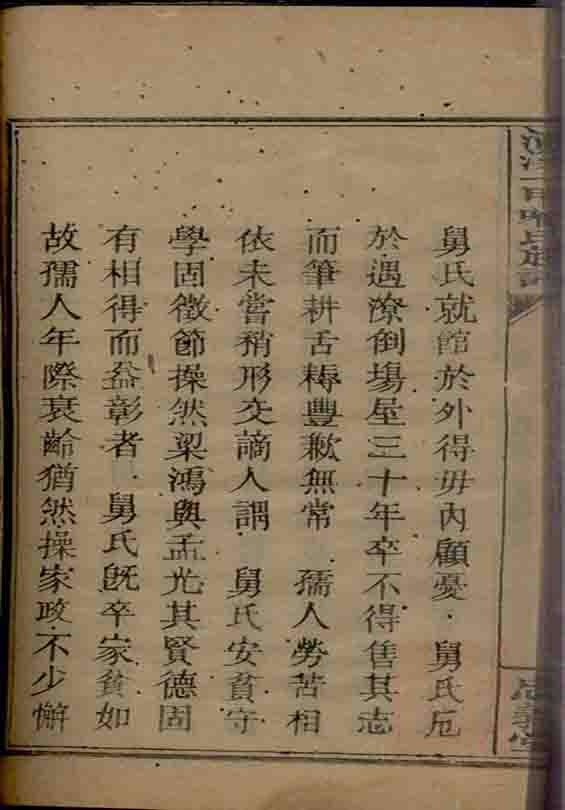 舅氏就館於外得毋內顧憂舅氏厄
於遇潦倒場屋三十年卒不得售其志
而筆耕舌耨豐歉無常孺人勞苦相
依未嘗稍形交謫人謂舅氏安貧守
學固徵節操然梁鴻與孟光其賢德固
有相得而益彰者舅氏既卒家貧如
故孺人年際衰齡猶然操家政不少懈